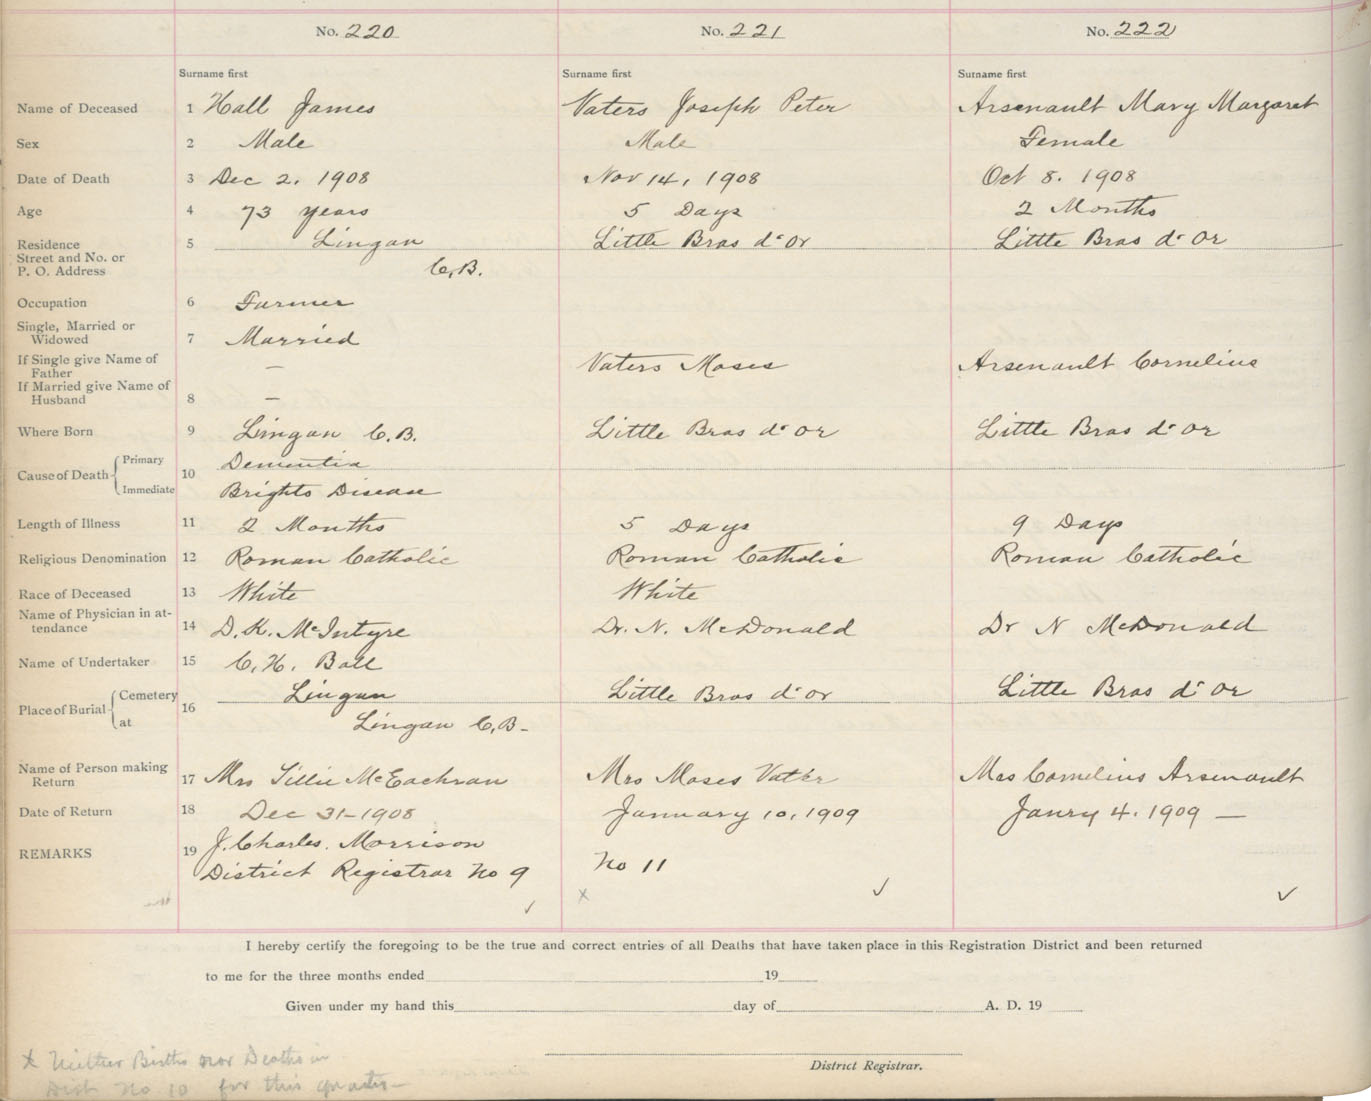 No. 220 No. 221 No. 222
Surname first Surname first Surname first
Name of Deceased 1 Hall James Vaters Joseph Peter Arsenault Mary Margaret
Sex 2 Male Male Female
Date of Death 3 Dec 2. 1908 Nov 14, 1908 Oct 8. 1908
Age 4 73 years 5 Days 2 Months
Residence 5 Lingan Little Bras d'Or Little Bras d'Or
Street and No. or
P. O. Address C.B.
Occupation 6 Farmer
Single, Married or
Widowed 7 Married
If Single give Name of
Father — Vaters Moses Arsenault Cornelius
If Married give Name of
Husband 8 —
Where Born 9 Lingan C.B. Little Bras d'Or Little Bras d'Or
Cause of Death Primary 10 Dementia
Immediate Brights Disease
Length of Illness 11 2 Months 5 Days 9 Days
Religious Denomination 12 Roman Catholic Roman Catholic Roman Catholic
Race of Deceased 13 White White
Name of Physician in at-
tendance 14 D. K. McIntyre Dr. N. McDonald Dr N McDonald
Name of Undertaker 15 C. H. Ball
Place of Burial Cemetery 16 Lingan Little Bras d'or Little Bras d'Or
at Lingan C.B-
Name of Person making
Return 17 Mrs Tillie McEachran Mrs Moses Vater Mrs Cornelius Arsenault
Date of Return 18 Dec 31-1908 January 10, 1909 Janry 4. 1909 —
REMARKS 19 J. Charles. Morrison
District Registrar No 9 No 11
x
I hereby certify the foregoing to be the true and correct entries of all Deaths that have taken place in this Registration District and been returned
to me for the three months ended 19
Given under my hand this day of A. D. 19
District Registrar.
x Neither Births nor Deaths in
Dist No 10 for this quarter—